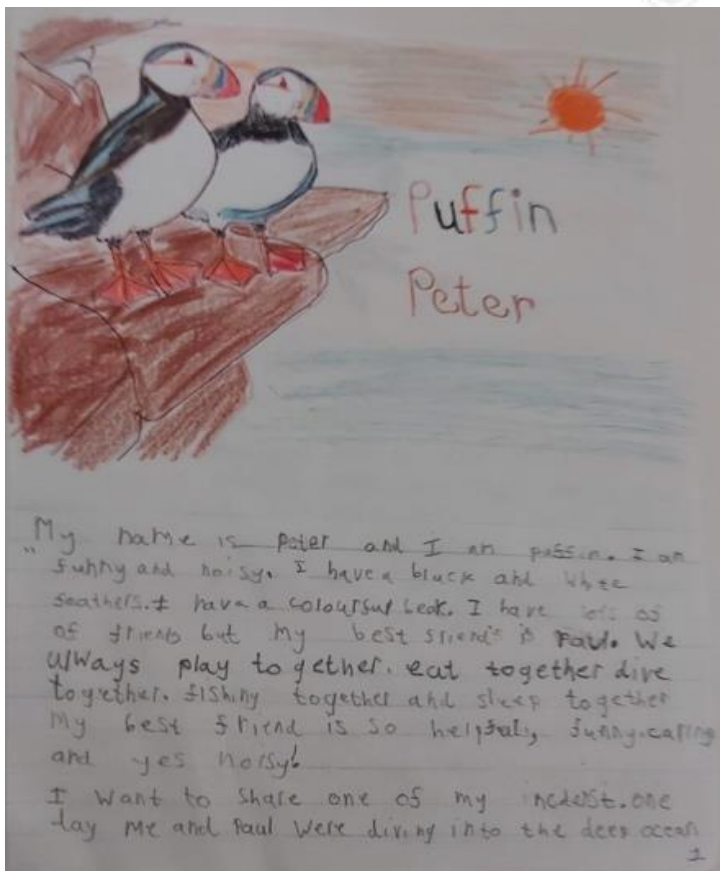 Puffin
Peter
My name is peter and I am puffin. I am
" funny and noisy. I have a black and white
feathers. I have a colourful beak. I have lots of
of friends but my best friend is Paul. We
always play together. eat together dive
together. fishing together and sleep together
My best friend is so helpful, funny. caring
and yes noisy!
I want to share one of my . one
day me and Paul were diving into the deep ocean
1